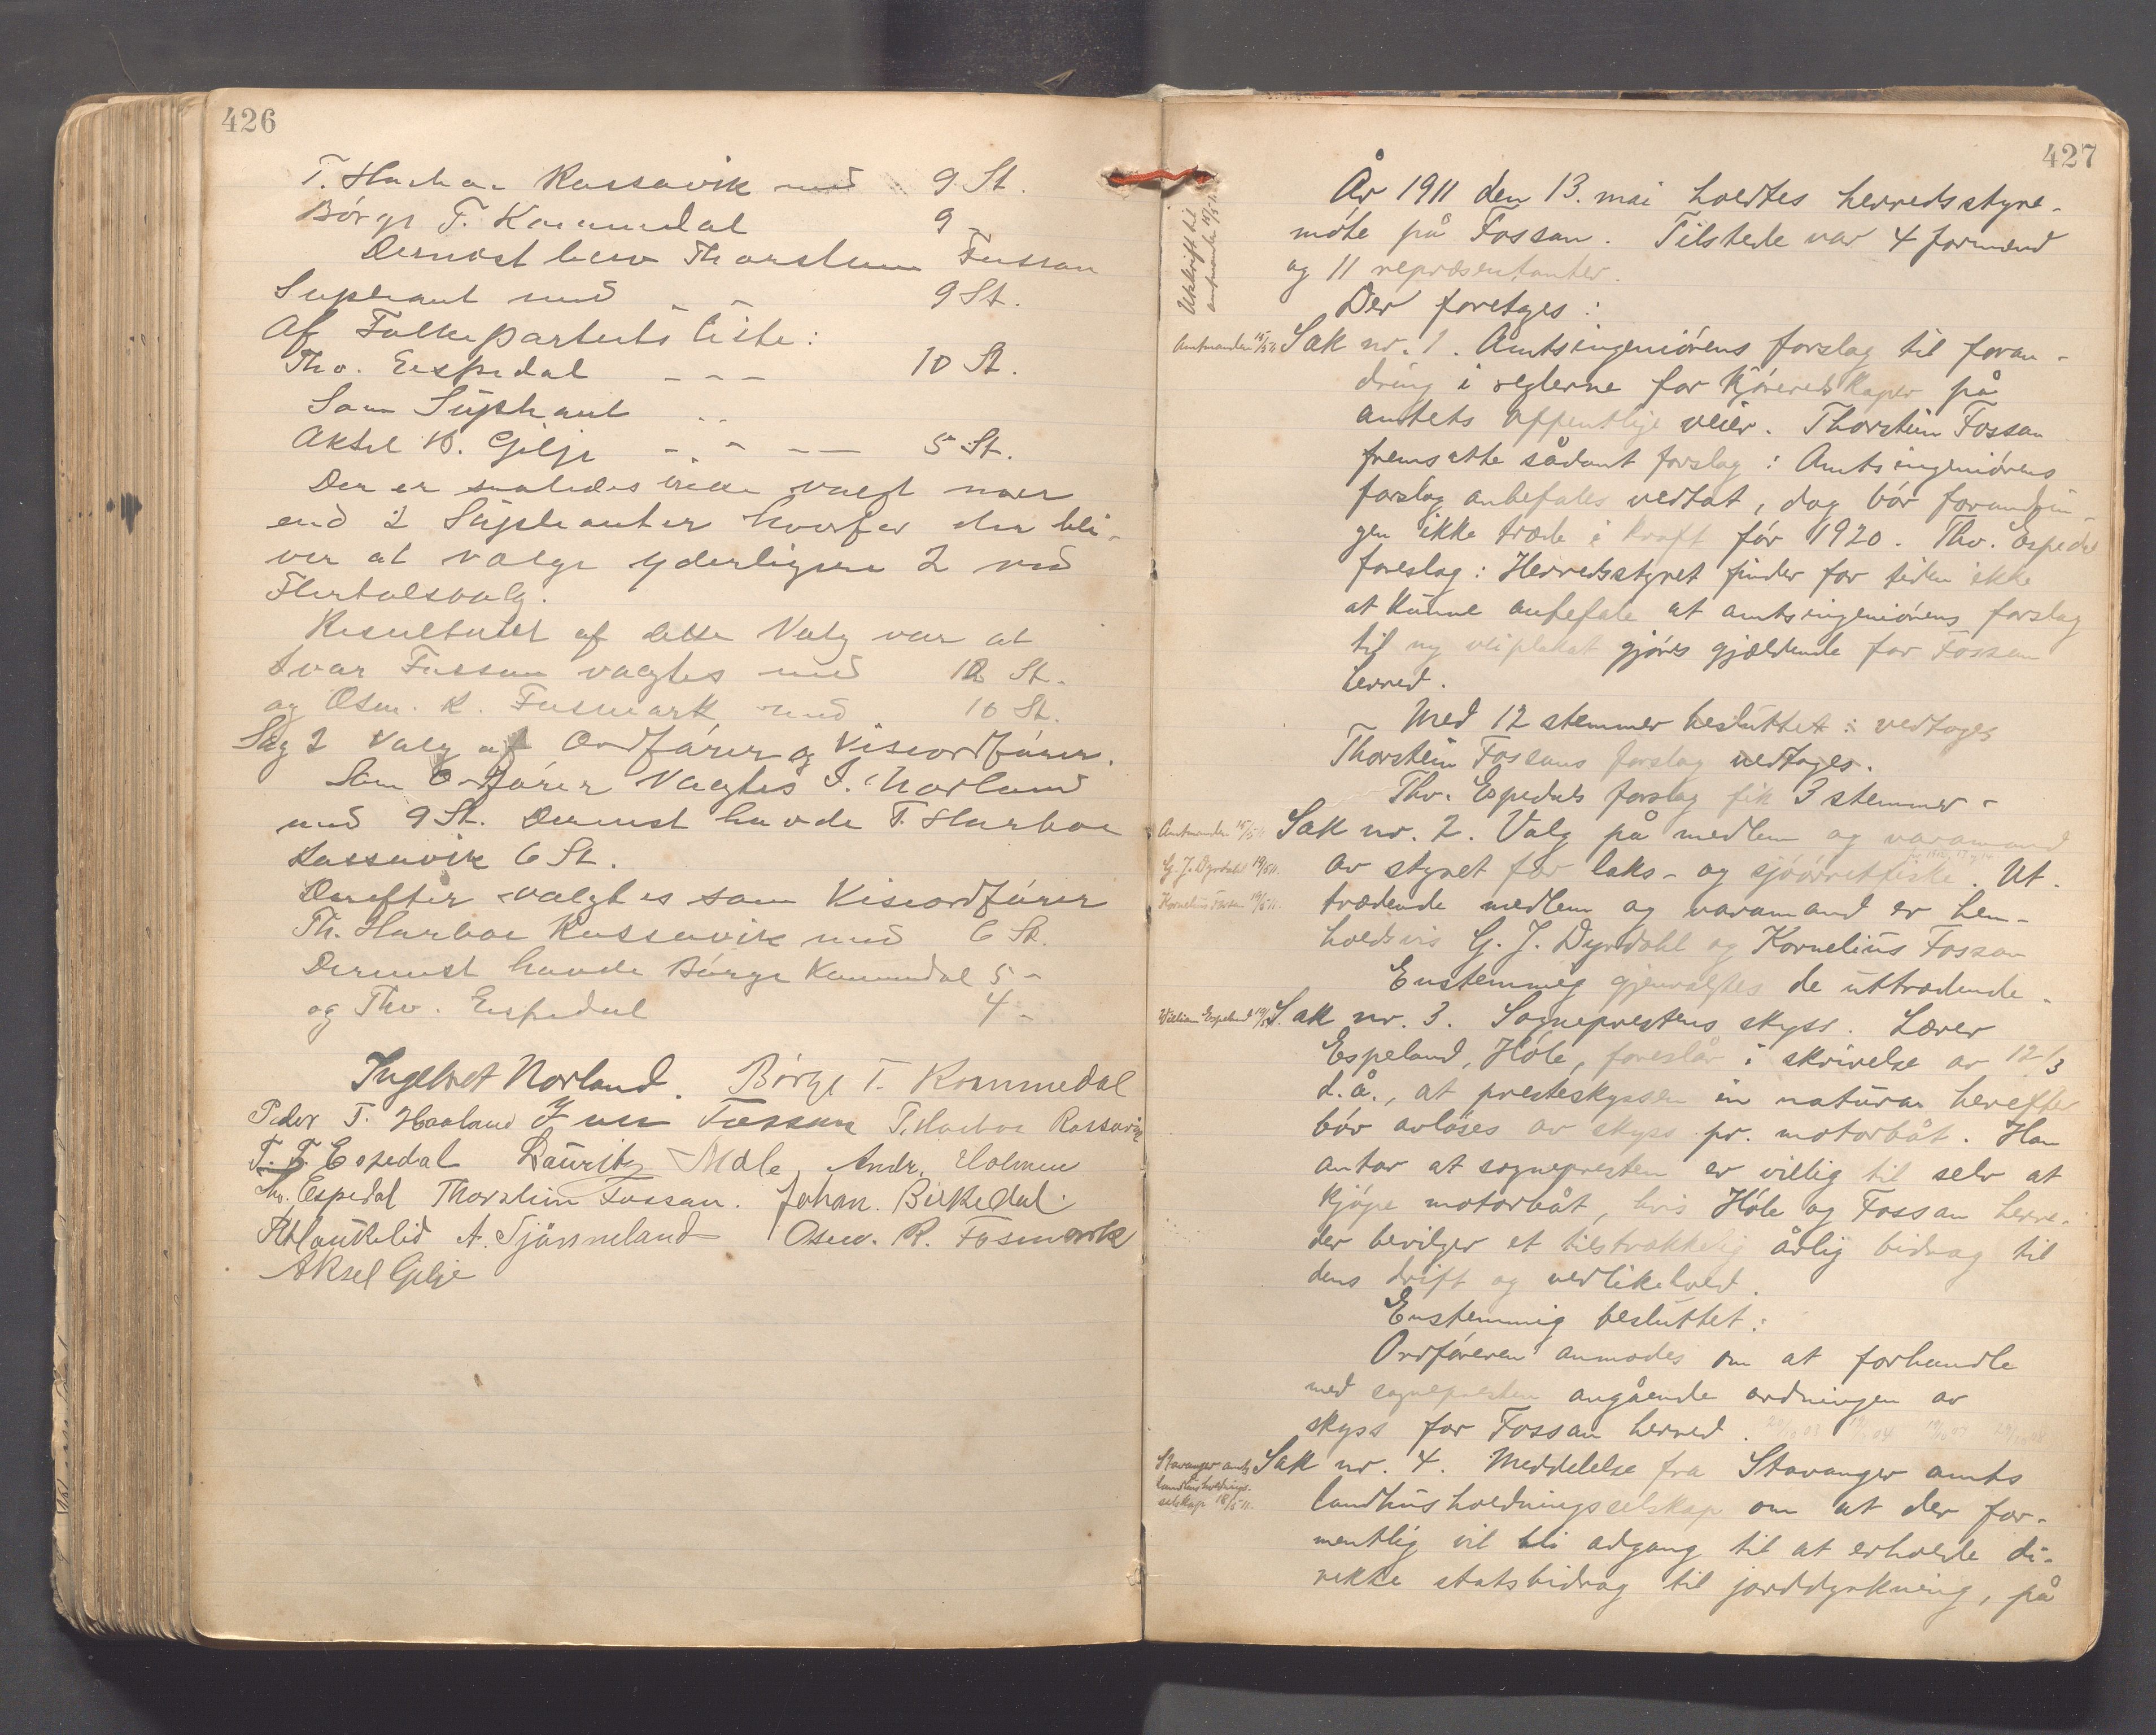 426
T. Harboe Rossavik med 9 St.
Börge T. Kommedal 9 -
Dernæst blev Thorstein Fossan
Supleant med - - 9 St.
Af Folkepartiets Liste:
Thv. Espedal - - - 10 St.
Som Supleant - -
Aksel B. Gilje - - - - 5 St.
Der er saaledes ikke valgt mer
end 2 Supleanter hvorfor der bli-
ver at vælge yderligere 2 ved
Flertalsvalg.
Resultatet af dette Valg var at
Ivar Fossan valgtes med 12 St.
og Osm. R. Fosmark med 10 St.
Sag 2 Valg af Ordfører og Viseordfører.
Som Ordfører valgtes I. Norland
med 9 St. Dernest havde T. Harboe
Rossavik 6 St.
Derefter valgtes som Viseordfører
Th. Harboe Rossavik med 6 St.
Dernest havde Börge Kommedal 5 -
og Thv. Espedal 4 -
Ingebret Norland. Börge T. Kommedal
Peder T. Haaland Ivar Fossan T. Harboe Rossavik
T. T. Espedal Lauritz Mæle Andr. Holmen
Thv. Espedal Thorstein Fossan. Johan Birkedal.
R Haukelid A. Tjørmeland Osm. R. Fosmark
Aksel Gilje
427
Utskrift til
amtmanden 15/5 11
År 1911 den 13. mai holdtes herredsstyre-
möte på Fossan. Tilstede var 4 formænd
og 11 repræsentanter.
Der foretges:
Amtmanden 15/5 11
Sak nr. 1. Amtsingeniörens forslag til foran-
dring i reglerne for kjöreredskaper på
amtets offentlige veier. Thorstein Fossan
fremsatte sådant forslag: Amtsingeniörens
forslag anbefales vedtat, dog bör forandrin-
gen ikke træde i kraft för 1920. Thv. Espedal
foreslog: Herredsstyret finder for tiden ikke
at kunne anbefale at amtsingeniörens forslag
til ny veiplakat gjöres gjældende for Fossan
herred.
Med 12 stemmer besluttet: vedtoges
Thorstein Fossans forslag vedtoges.
Thv. Espedals forslag fik 3 stemmer -
Amtmanden 15/5 11
G. J. Dyrdahl 19/5 11.
Kornelius Fossan 19/5 11.
Sak nr. 2. Valg på medlem og varamand
av styret for laks- og sjöörretfiske. Ut-
trædende medlem og varamand er hen-
holdsvis G. J. Dyrdahl og Kornelius Fossan
Enstemmig gjenvalgtes de uttrædende.
Villiam Espeland 19/5 11
Sak nr. 3. Sogneprestens skyss. Lærer
Espeland, Höle, foreslår i skrivelse av 12/3
d.å., at presteskyssen in natura herefter
bör avlöses av skyss pr. motorbåt. Han
antar at sognepresten er villig til selv at
kjöpe motorbåt, hvis Höle og Fossan herre-
der bevilger et tilstrækkelig årlig bidrag til
dens drift og vedlikehold.
Enstemmig besluttet:
Ordföreren anmodes om at forhandle
med sognepresten angående ordningen av
skyss for Fossan herred.
Stavanger amts
landhusholdnings-
selskap 18/5 11.
Sak nr. 4. Meddelelse fra Stavanger amts
landhusholdningsselskap om at der for-
mentlig vil bli adgang til at erholde di-
rekte statsbidrag til jorddyrkning, på